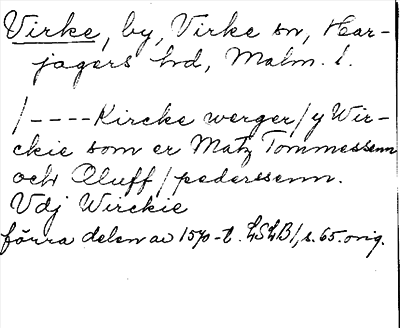 Virke, by, Virke sn, Har-
jagers hd, Malm. l.
/----Kircke werger/y Wir-
ckie som er Matz Tommessenn
och Oluff/pederssenn.
Vdj Wirckie
förra delen av 1570-t. LSLB1, s. 65. orig.